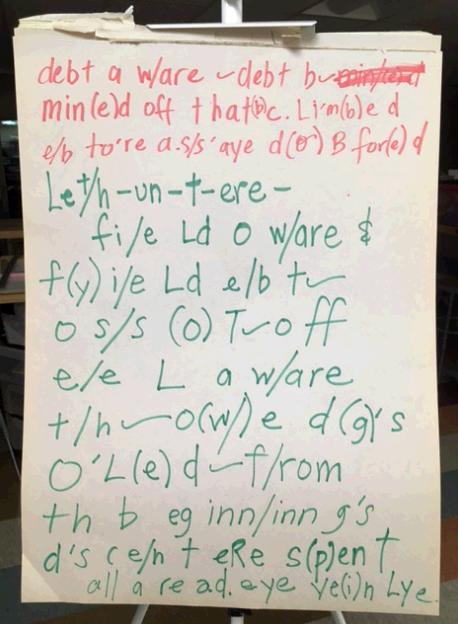 debt a w/are ~debt b~
min(e)d off that(b)c. Lim(b)e d
e/b to're a.s/s'aye d(o') B for(e) d
Let/h-un-t-ere-
fi/e Ld o w/are &
f(y) i/e Ld e/b t~
o s/s (o) T~o ff
e/e L a w/are
t/h ~o(w)e d(g)'s
O'L(e) d ~f/rom
th b eg inn/inn g's
d's ce/n t eRe s(p)en t
all a re ad. eye ye(i)n Lye.